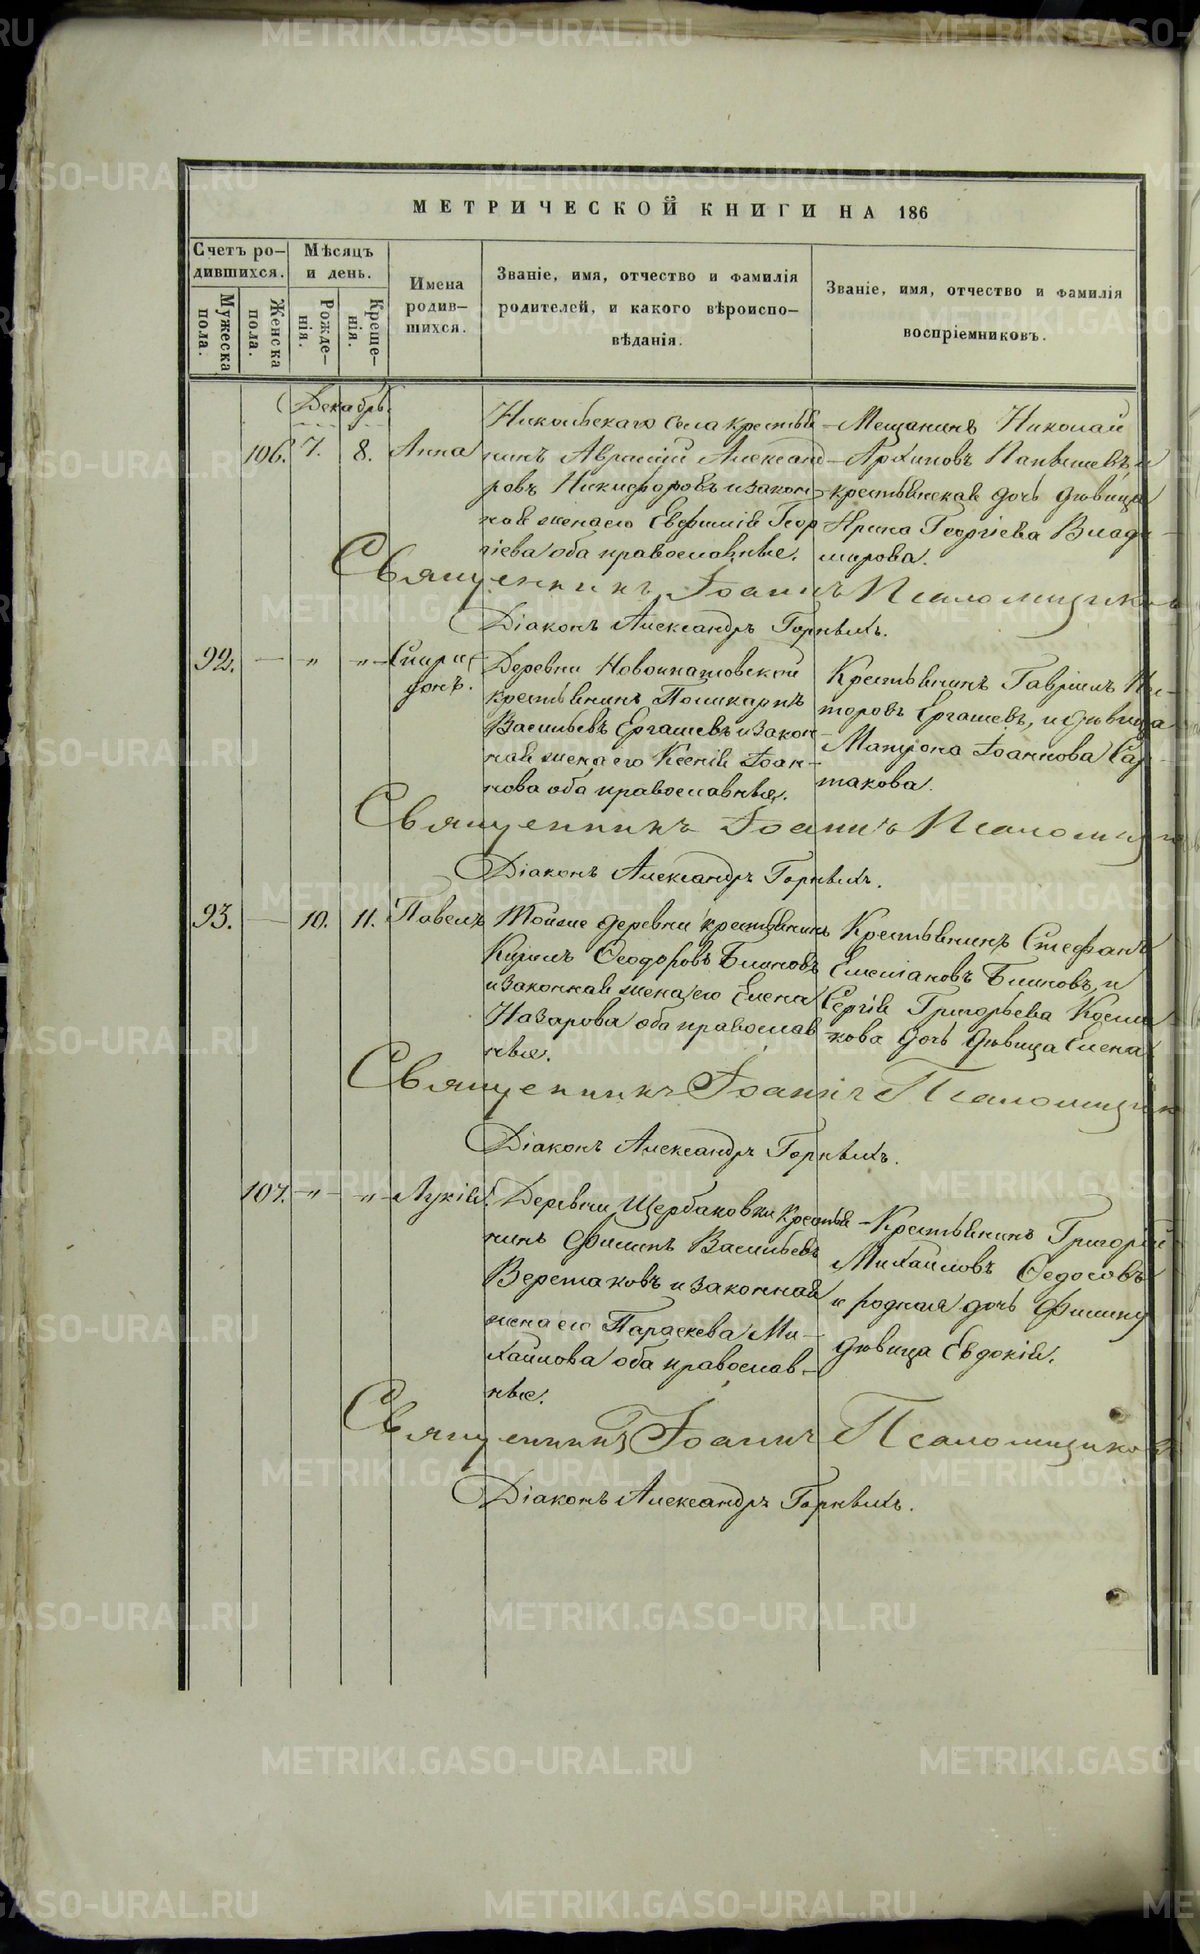 МЕТРИЧЕСКОЙ КНИГИ НА 186
Счетъ ро-
дившихся.
Мѣсяцъ
и день.
Имена
родив-
шихся.
Званіе, имя, отчество и фамилія
родителей, и какого вѣроиспо-
вѣданія.
Званіе, имя, отчество и фамилія
воспріемниковъ.
Мужеска
пола.
Женска
пола.
Рожде-
нія.
Креще-
нія.
Декабрь.
106. 7. 8. Анна
Никольскаго села крестья-
нинъ Авраамій Александ-
ровъ Никифоровъ и закон-
ная жена его Евфимія Геор
гіева оба православные.
Мещанинъ Николай
Архиповъ и
крестьянская дочь дѣвица
Ирина Георгіева Влади-
мирова.
Священникъ Іоаннъ Псаломщиковъ
Діаконъ Александръ Горныхъ.
92. — „ „ Спири-
донъ.
Деревни Новоипатовской
крестьянинъ Поликарпъ
Васильевъ Ергашевъ и закон-
ная жена его Ксенія Іоан-
нова оба православные.
Крестьянинъ Гавріилъ Нес-
торовъ Ергашевъ, и дѣвица
Матрона Іоаннова Сар-
такова.
Священникъ Іоаннъ Псаломщи
Діаконъ Александръ Горныхъ.
93. — 10. 11. Павелъ
Тойже деревни крестьянинъ
Кирилъ Ѳеодоровъ Блиновъ
и законная жена его Елена
Назарова оба православ
ные.
Крестьянинъ Стефанъ
Емелiановъ Блиновъ, и
Сергія Григорьева
кова дочь дѣвица Елена
Священникъ Іоаннъ Псаломщик
Діаконъ Александръ Горныхъ.
107. — „ — „ Лукія.
Деревни Щербаковки крестья-
нинъ Филипъ Васильевъ
Верстаковъ и законная
жена его Параскева Ми-
хайлова оба православ-
ные.
Крестьянинъ Григорій
Михайловъ Ѳедосовъ
и родная дочь Филипу
дѣвица Евдокія.
Священникъ Іоаннъ Псаломщиковъ
Діаконъ Александръ Горныхъ.
METRIKI.GASO-URAL.RU